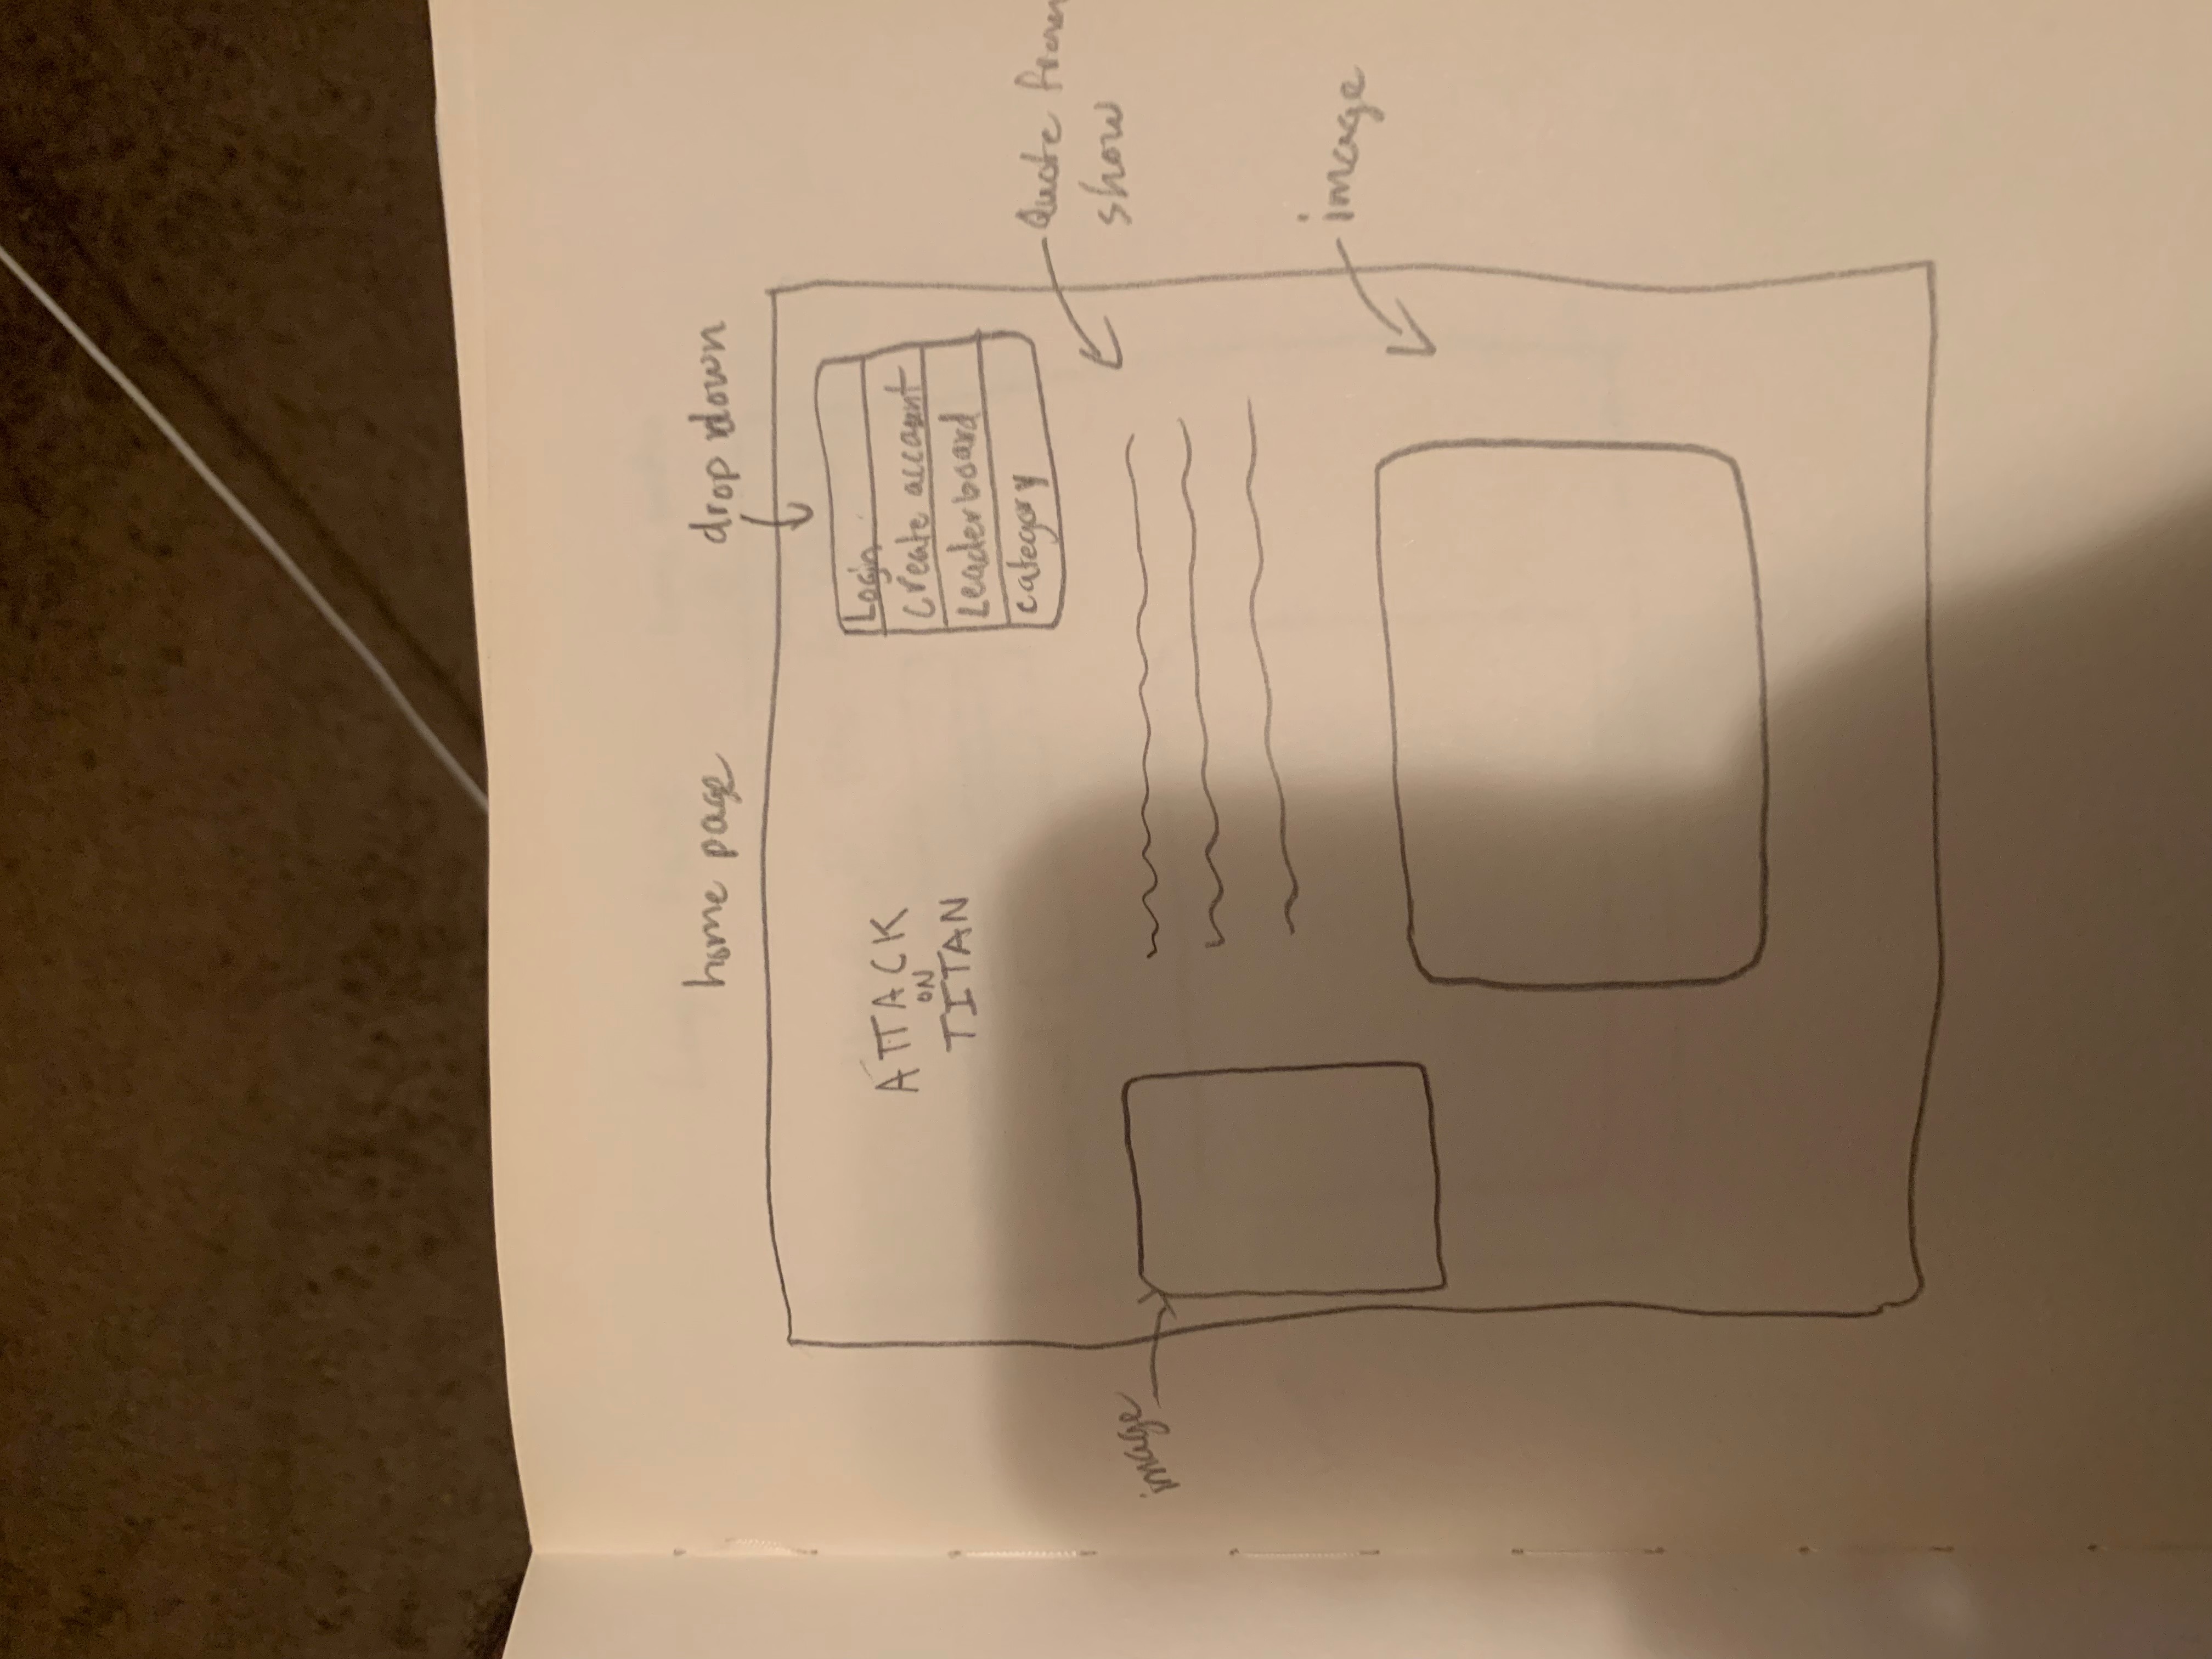 home page
drop down
ATTACK
ON
TITAN
Login
Create account
Leaderboard
category
Quote from
show
image
image